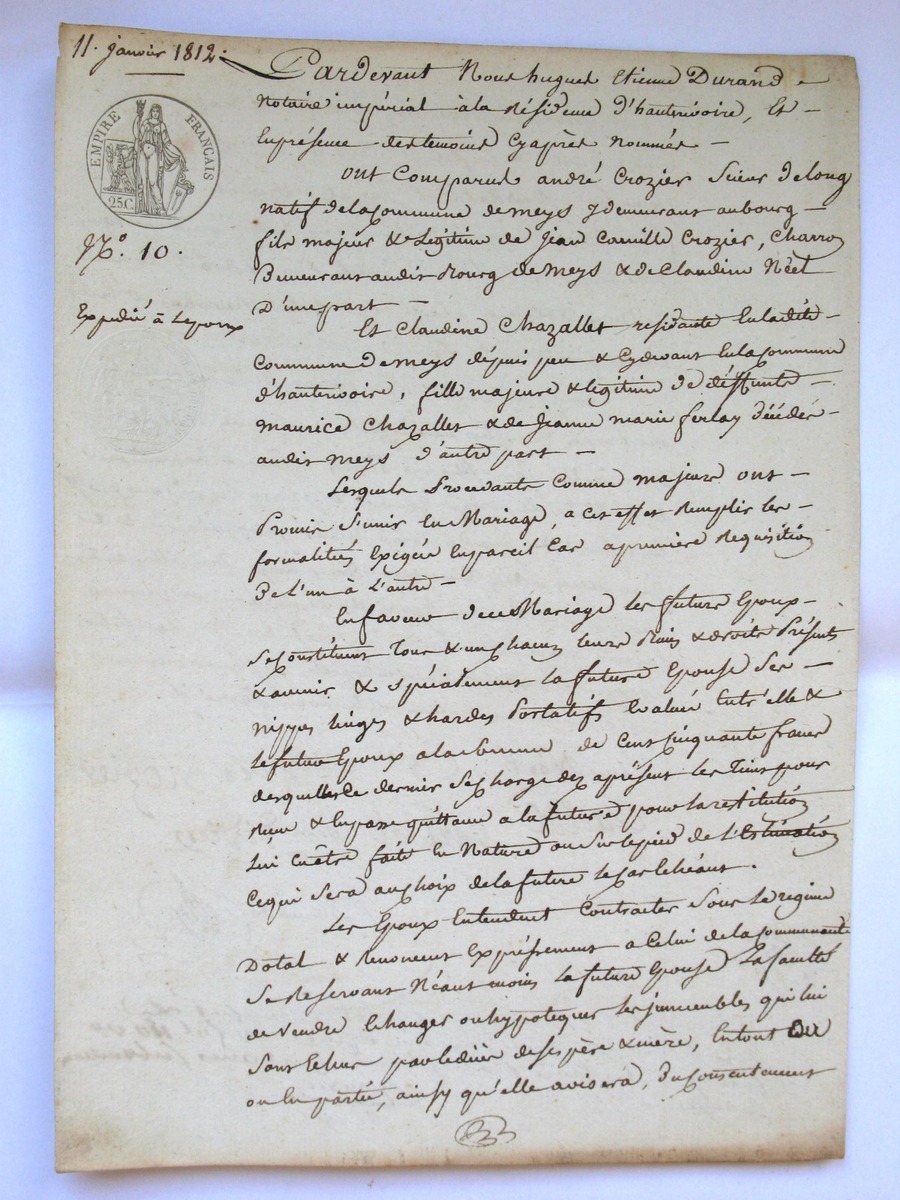 11. janvier 1812.
Pardevant Nous hugues Etienne Durand
Notaire impérial à la Résidence d'hauterivoire, Et
En présence des temoins Cyaprès Nommés
EMPIRE FRANÇAIS
25C.
ont Comparus andré Crozier Scieur de long
natif de la Commune de meys y demeurant au bourg
N.º 10.
fils majeur & Légitime de Jean Camille Crozier, Charron
Demeurant audit Bourg de meys & de Claudine Néel
D'une part
Expedié à
Et Claudine Chazallet residante En ladite
Commune de meys depuis peu & Cydevant En la Commune
d'hauterivoire, fille majeure & légitime de deffunts
maurice Chazallet & de Jeanne marie ferlay décédés
audit meys d'autre part
Lesquels Procedants Comme majeurs ont
Promis S'unir En Mariage, a Cet effet Remplir les
formalités Exigées En pareil Cas a premiere Requisition
De L'un à L'autre
En faveur de ce Mariage les future Epoux
Se Constituent Tous & un chacun leurs Biens & droits Présents
& avenir & spécialement la future Epouse Ses
Nippes linges & hardes Portatifs Evalués Entr'elle &
le futur Epoux a la Somme de Cent Cinquante francs
desquels Ce dernier Se charge dez aprésent les Tiens pour
Reçu & En passe quittance a la future pour la restitution
Lui En être faite En Nature ou Sur le pied de L'Estimation
Ce qui Sera au Choix de la future le Cas Echéant.
Les Epoux Entendent Contracter Sous le regime
Dotal & Renoncent Expressément a Celui de la Communauté
Se Reservant Néant moins la future Epouse La faculté
de Vendre Echanger ou hypotequer les immeubles qui lui
Sont Echus par le déces de Ses père & mère, En tout ou
ou En partie, ainsy qu'elle avisera, Du Consentement